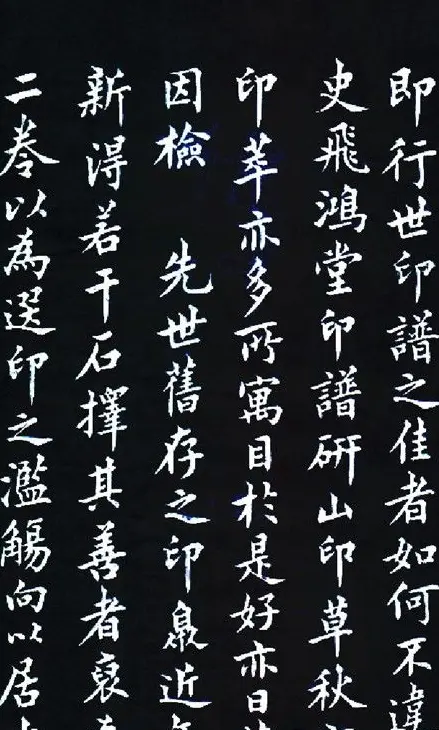 即行世印譜之佳者如何不違
史飛鴻堂印譜研山印草秋
印萃亦多所寓目於是好亦日
因檢 先世舊存之印㫡近
新得若干石擇其善者裒
二卷以為選印之濫觴向以居